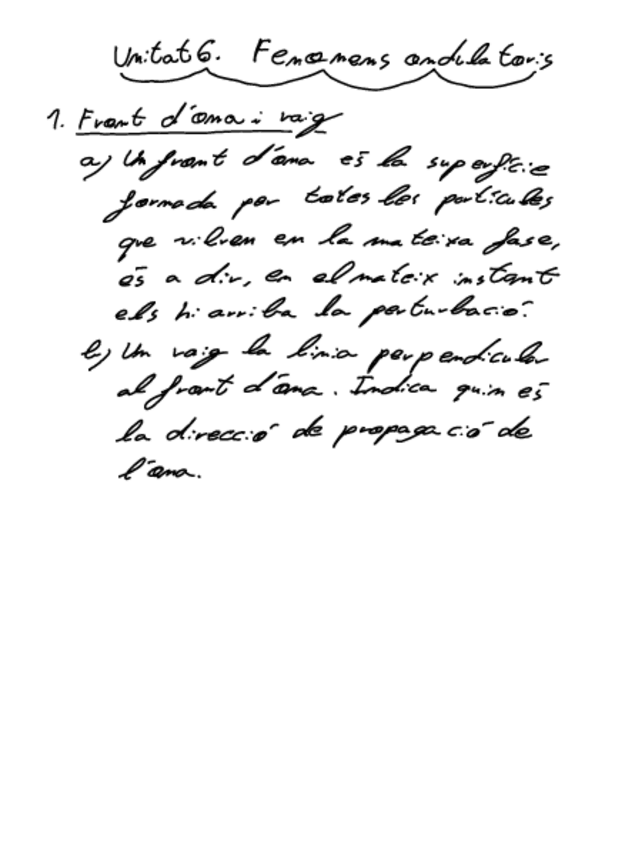 Unitat 6. Fenomens ondulatoris
1. Front d'ona i raig
a) Un front d'ona és la superfície
formada per totes les partícules
que vibren en la mateixa fase,
és a dir, en el mateix instant
els hi arriba la perturbació.
b) Un raig la línia perpendicular
al front d'ona. Indica quin és
la direcció de propagació de
l'ona.